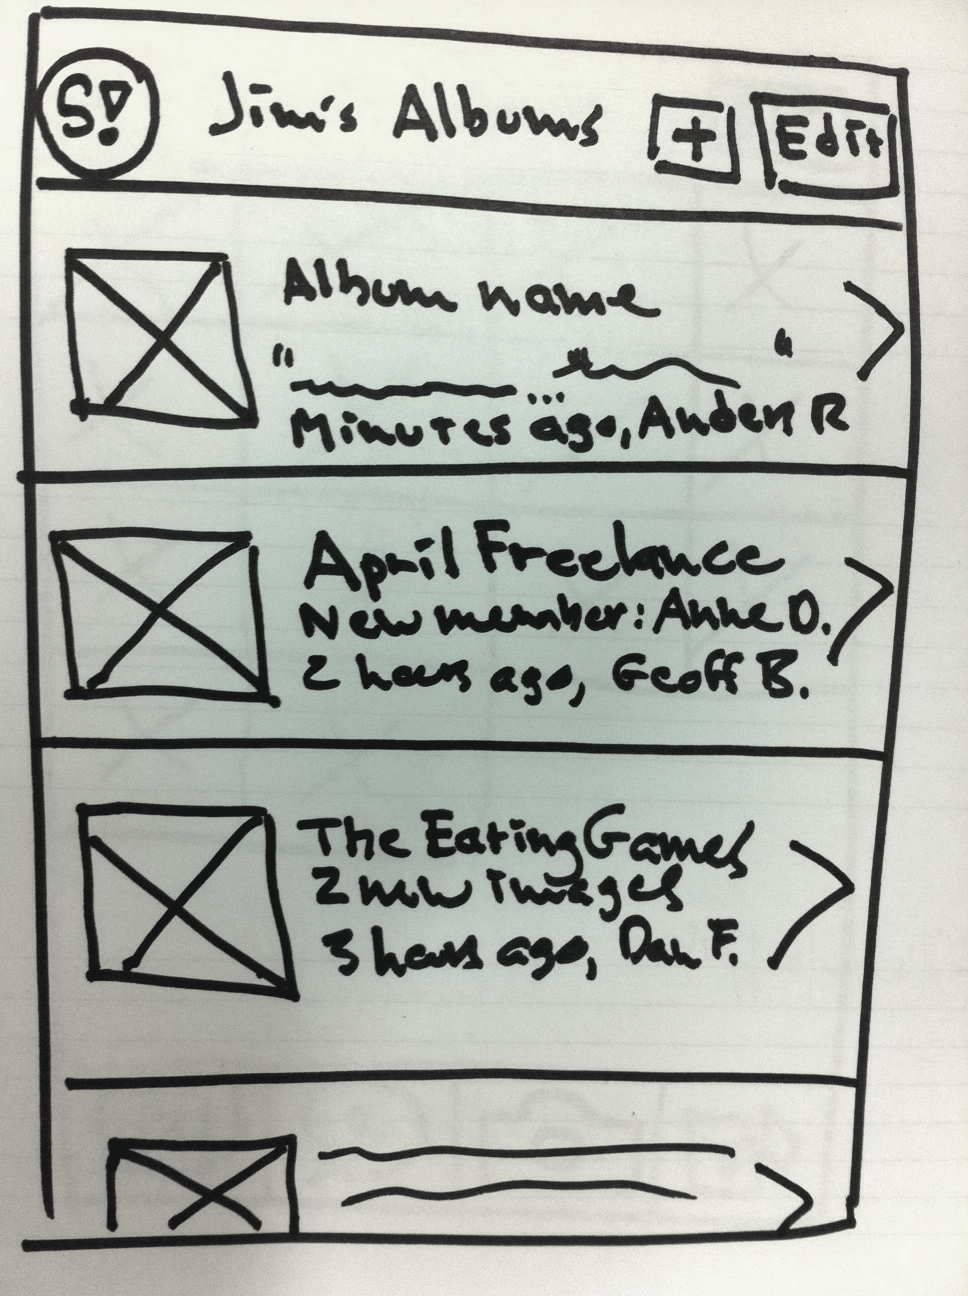 S!
Jim's Albums
+
Edit
Album name
" ... "
Minutes ago, Anden R
April Freelance
New member: Anne D.
2 hours ago, Geoff B.
The Eating Games
2 new images
3 hours ago, Dan F.